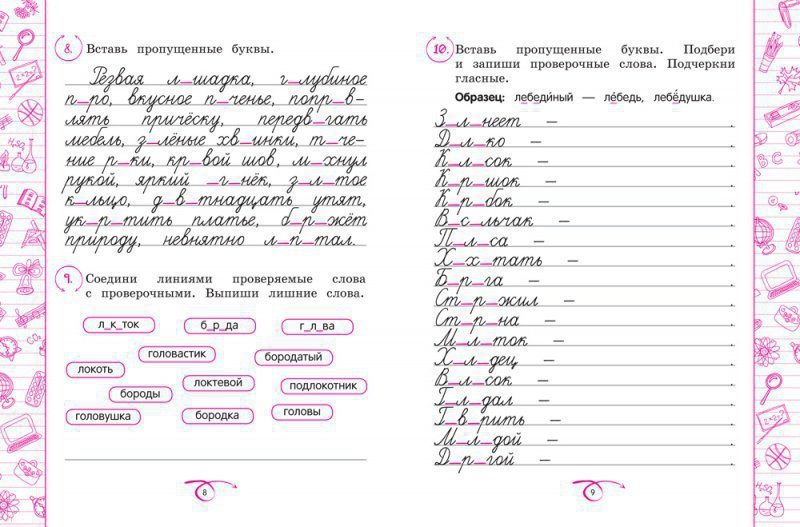 8. Вставь пропущенные буквы.
Резвая л_шадка, г_лубиное
п_ро, вкусное п_ченье, попр_в-
лять причёску, передв_гать
мебель, з_лёные хв_инки, т_че-
ние р_ки, кр_вой шов, м_хнул
рукой, яркий _г_нёк, з_л_тое
к_льцо, д_в_тнадцать утят,
ук_р_тить платье, б_р_жёт
природу, невнятно л_п_тал.
9. Соедини линиями проверяемые слова
с проверочными. Выпиши лишние слова.
л_к_ток б_р_да г_л_ва
головастик бородатый
локоть локтевой подлокотник
бороды
головушка бородка головы
8
10. Вставь пропущенные буквы. Подбери
и запиши проверочные слова. Подчеркни
гласные.
Образец: лебеди́ный — ле́бедь, лебё́душка.
З_л_неет —
Д_л_ко —
К_л_сок —
К_р_шок —
К_р_бок —
В_с_льчак —
П_л_са —
Х_х_тать —
Б_р_га —
Ст_р_жил —
Ст_р_на —
М_л_ток —
Х_л_дец —
В_л_сок —
Г_л_дал —
Г_в_рить —
М_л_дой —
Д_р_гой —
9